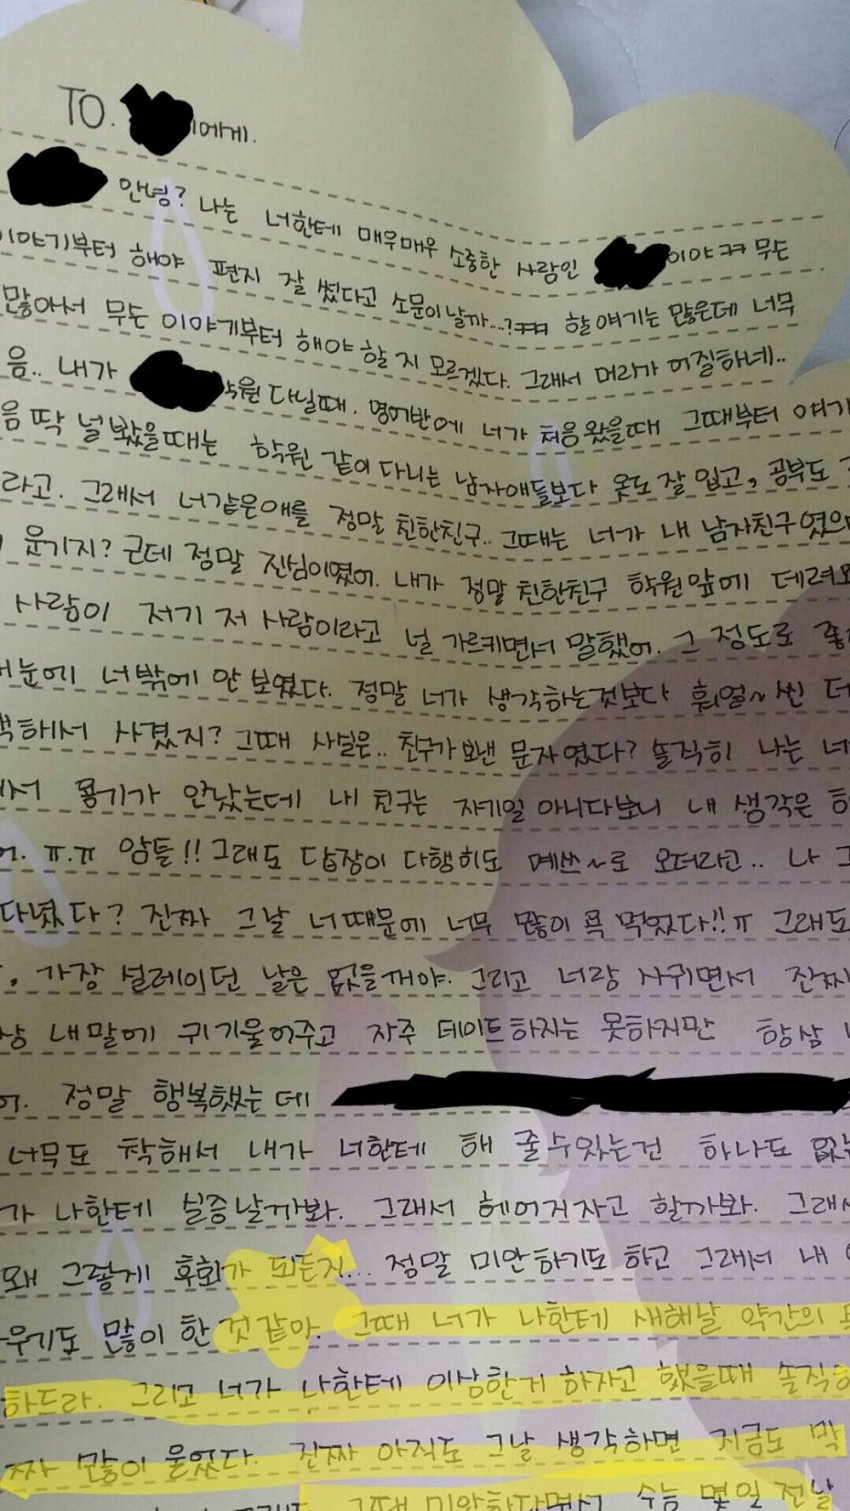 TO. 이에게.
안녕? 나는 너한테 매우매우 소중한 사람인 이야ㅋㅋ 무슨
이야기부터 해야 편지 잘 썼다고 소문이날까...?ㅋㅋㅋ 할 얘기는 많은데 너무
많아서 무슨 이야기부터 해야 할 지 모르겠다. 그래서 머리가 어질하네..
음.. 내가 학원 다닐때. 영어반에 너가 처음왔을때 그때부터 얘기
음 딱 널봤을때는 학원 같이 다니는 남자애들보다 옷도 잘 입고, 공부도
라고. 그래서 너같은애를 정말 친한친구.. 그때는 너가 내 남자친구였으
웃기지? 근데 정말 진심이였어. 내가 정말 친한친구 학원앞에 데려와
사람이 저기 저 사람이라고 널 가르키면서 말했어. 그 정도로 좋
눈에 너밖에 안 보였다. 정말 너가 생각하는것보다 훠얼~씬 더
해서 사겼지? 그때 사실은.. 친구가 보낸 문자였다? 솔직히 나는 너
서 용기가 안났는데 내 친구는 자기일 아니다보니 내 생각은
어. ㅠ.ㅠ 암튼!! 그래도 답장이 다행히도 예쓰~로 오더라고.. 나 그
다녔다? 진짜 그날 너때문에 너무 많이 욕 먹었다!!ㅠ 그래도
가장 설레이던 날은 없을꺼야. 그리고 너랑 사귀면서 진짜
상 내말에 귀 기울여주고 자주 데이트하지는 못하지만 항상
어. 정말 행복했는데
너무도 착해서 내가 너한테 해 줄수있는건 하나도 없는
가 나한테 실증날까봐. 헤어지자고 할까봐. 그래서
왜 그렇게 후회가 되든지... 정말 미안하기도 하고 그래서 내
우기도 많이 한 것 같아. 그때 너가 나한테 새해날 약간의
하드라. 그리고 너가 나한테 이상한거 하자고 했을때 솔직히
짜 많이 울었다. 진짜 아직도 그날 생각하면 지금도 막
그때 미안하다면서 수능 몇일 전날